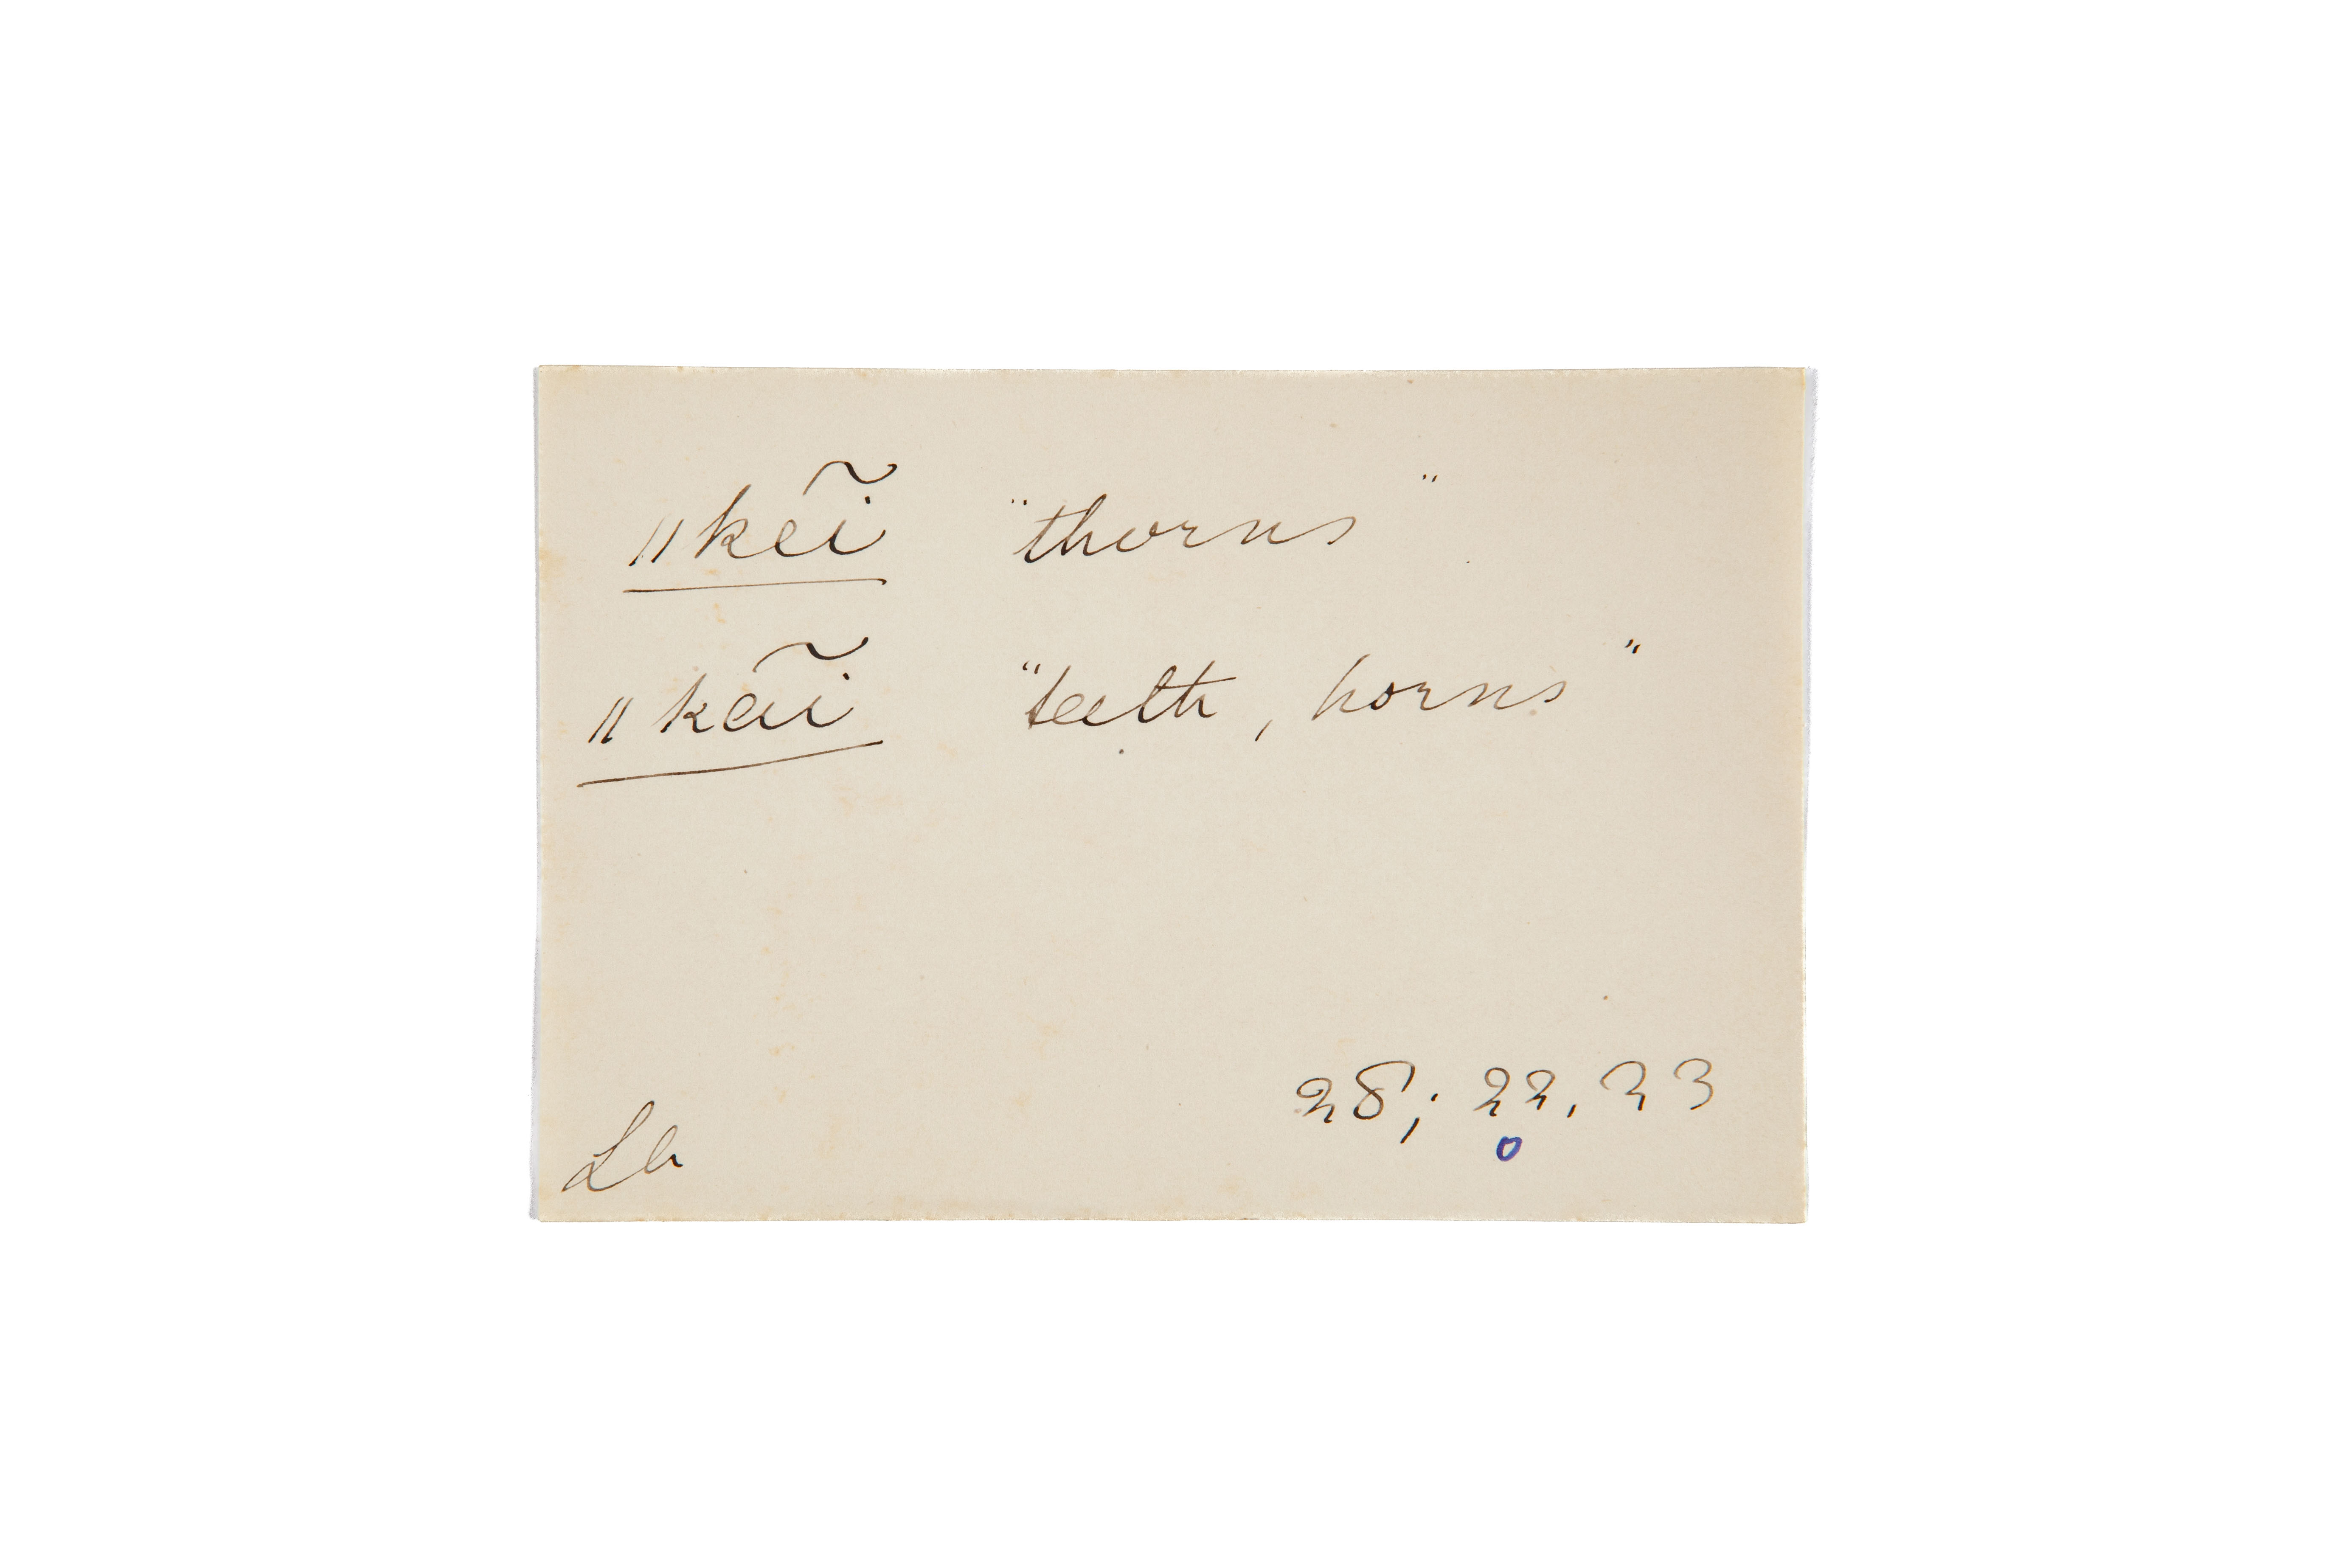 ǁkẽĩ "thorns"
ǁkãĩ "teeth, horns"
28; 22, 23
o